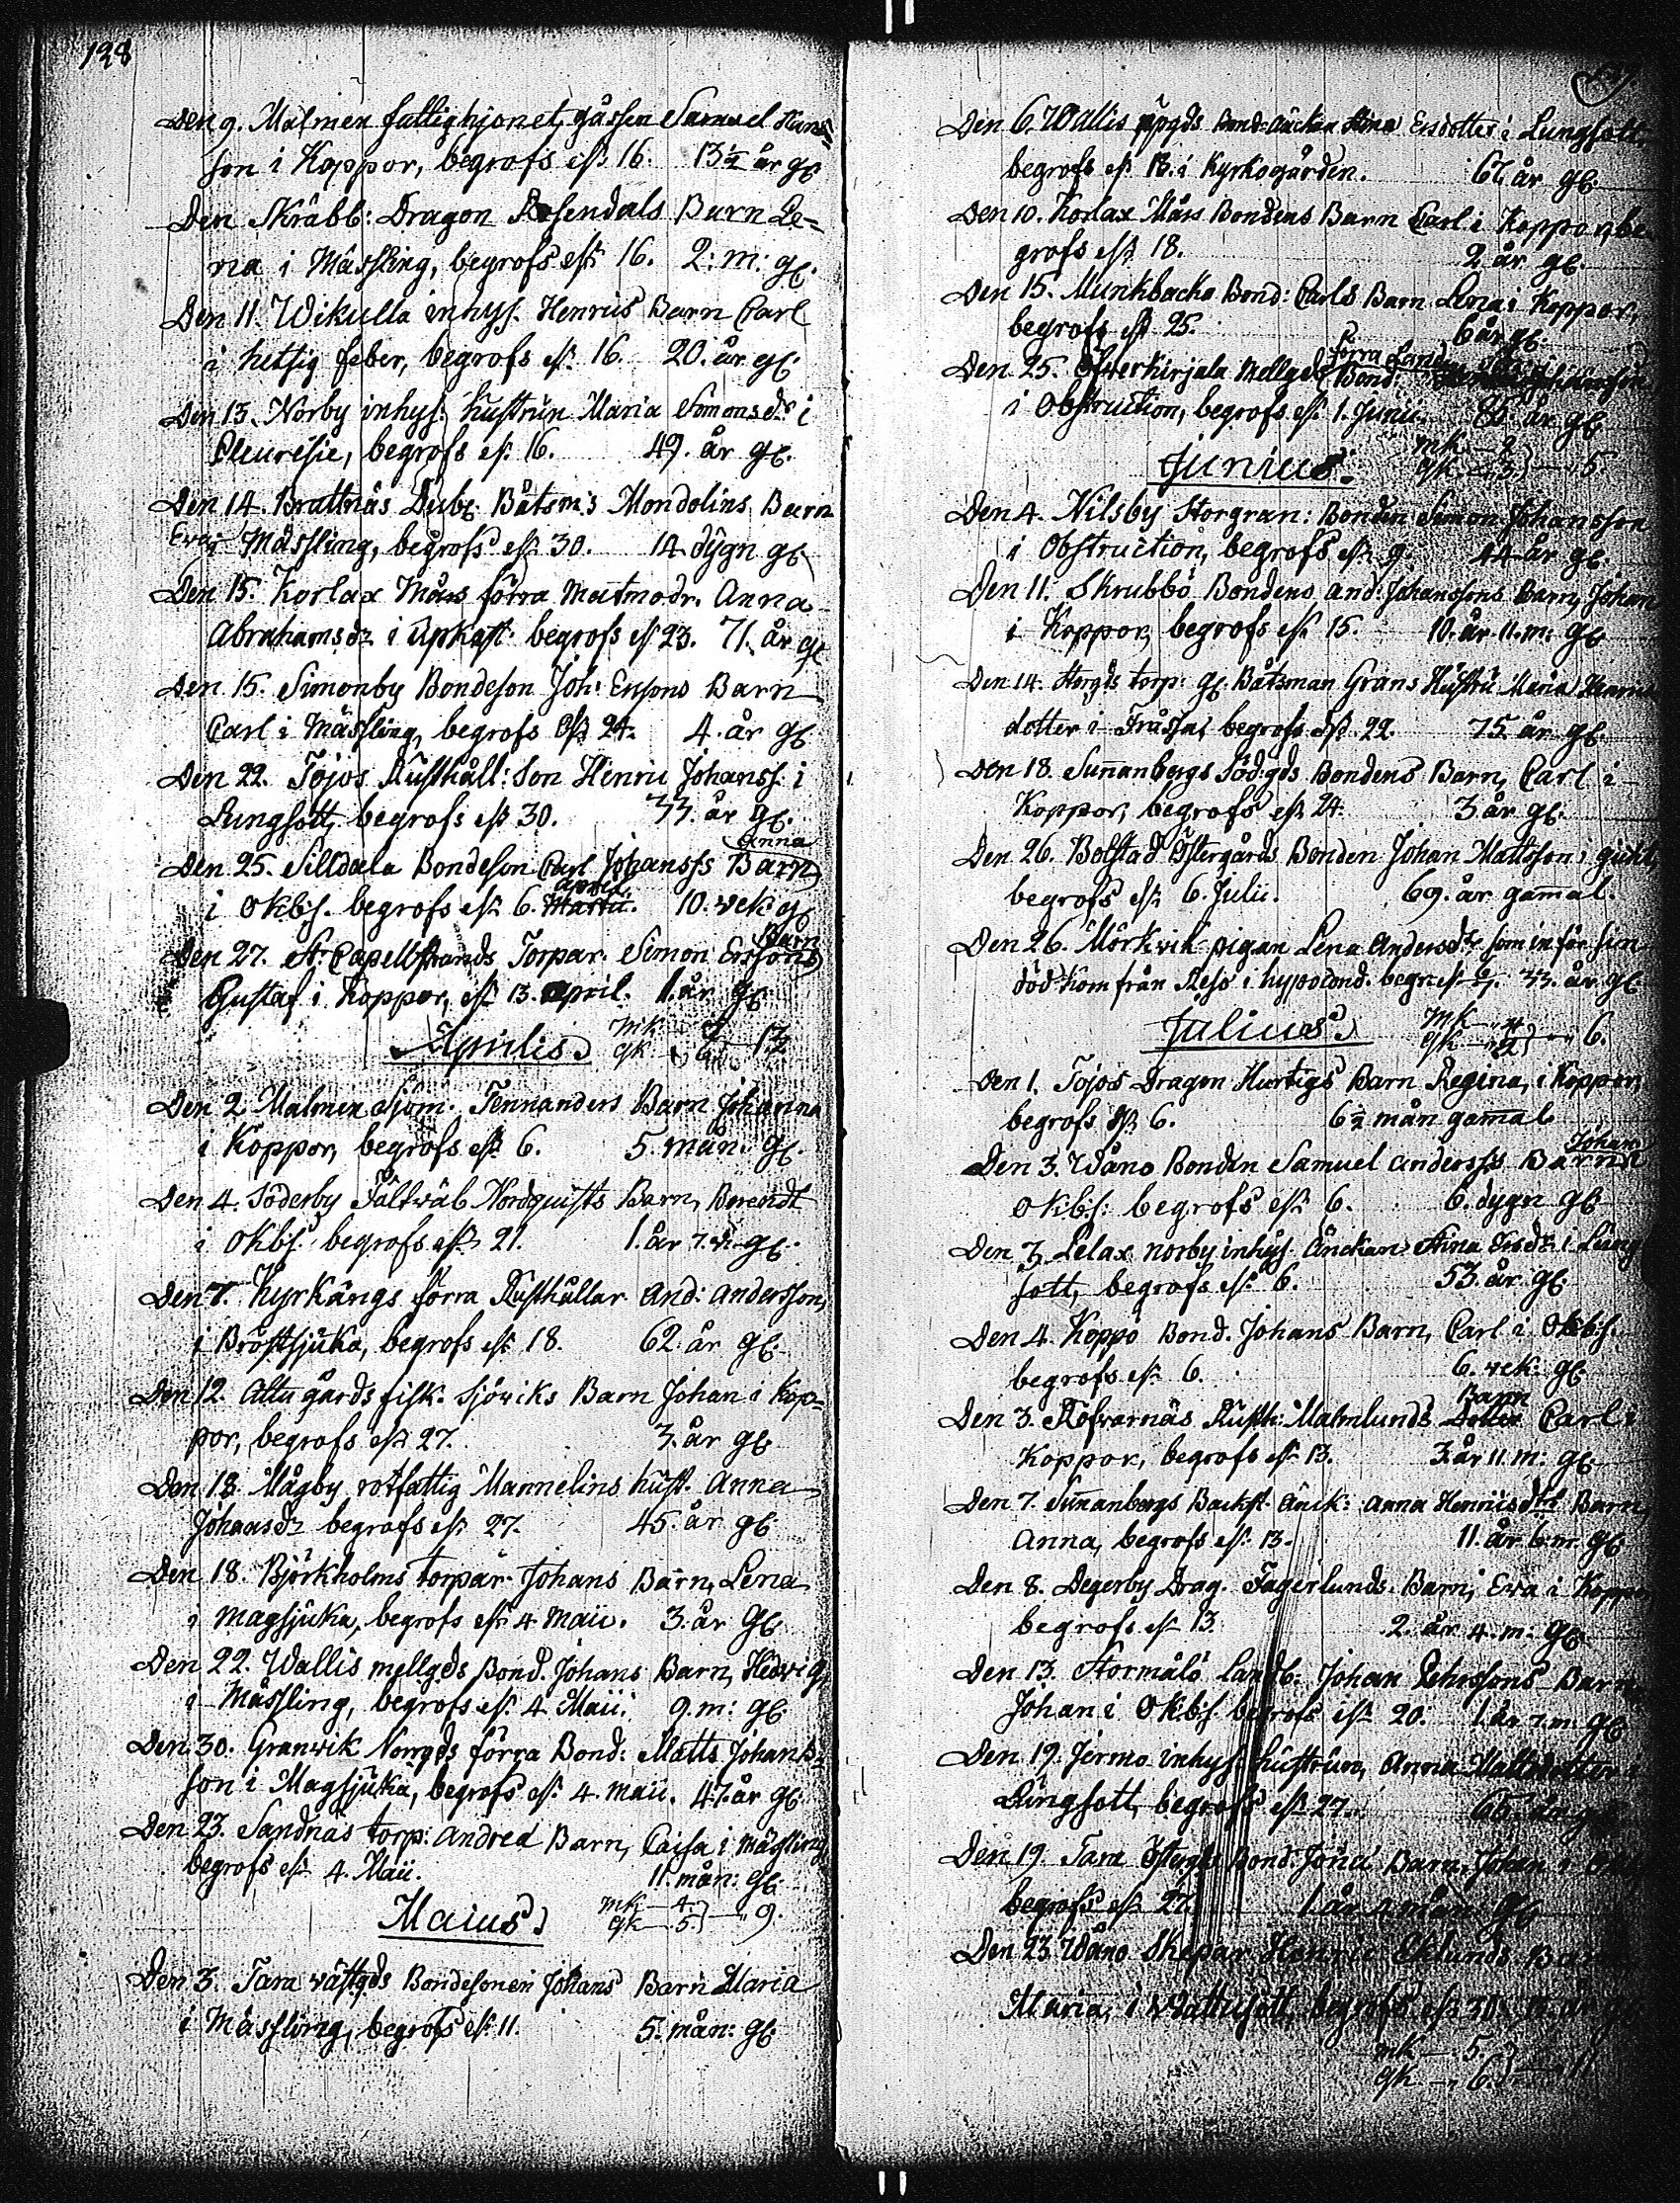 128
Den 9. Malmen fattighjonet, gåssen Samuel Hans=
son i Koppor, begrofs eft. 16. 13½ år gl.
Den Skräbb: Dragon Rosendals Barn Le=
na i Mässling, begrofs eft. 16. 2: m: gl.
Den 11. Wikulla inhys. Henrics Barn Carl
i hetsig feber, begrofs eft. 16. 20. år gl.
Den 13. Norby inhys: hustrun Maria Simonsdr i
Pleuresie, begrofs ef. 16. 49. år gl.
Den 14. Brattnäs Dubl. Båtsm:s Mondolins Barn
Eva i Mässling, begrofs eft. 30. 14 dygn gl.
Den 15. Korlax Måns förra Matmodr. Anna
Abrahamsdr i Upkast. begrofs ef. 23. 71. år gl.
Den 15. Simonby Bondeson Joh: Ersons Barn
Carl i Mässling, begrofs eft. 24. 4. år gl.
Den 22. Tojos Rusthåll: Son Henric Johanss. i
Lungsott, begrofs eft 30. 33. år gl.
Anna
Den 25. Silldala Bondeson Carl Johanss:s Barn
April.
i Okb:s. begrofs eft. 6. Martii. 10. vek: gl.
Barn
Den 27. St. Capellstrands Torpar. Simon Erssons
Gustaf i Koppor, eft. 13. april. 1. år gl.
Aprilis.
Den 2. Malmen Sjöm: Tennanders Barn Johanna
i Koppor, begrofs eft. 6. 5. mån. gl.
Den 4. Söderby Fältväb. Nordquists Barn, Berendt
i Okb:s. begrofs eft. 21. 1. år 7. gl.
Den 7. Kyrkängs förra Rusthållar And: Andersson,
i Bröstsjuka, begrofs eft. 18. 62. år gl.
Den 12. Attu gårds fisk. Sjöviks Barn Johan i Kop=
por, begrofs eft. 27. 3. år gl.
Den 18. Mågby rotfattig Mannelins hust. Anna
Johansdr begrafs eft. 27. 45. år gl.
Den 18. Björkholms torpar. Johans Barn, Lena
i magsjuka, begrofs eft. 4 Maii. 3. år gl.
Den 22. Wallis mellgds Bond. Johans Barn, Hedvig,
i Mässling, begrofs eft. 4. Maii. 9. m: gl.
Den 30. Granvik Norrgds förra Bond: Matts Johans=
son i Magsjuka, begrofs ef. 4. Maii. 47. år gl.
Den 23. Sandnäs torp: Andrea Barn, Caisa i Mässling
begrofs eft 4. Maii. 11. mån: gl.
Maius. mk — 4.
qk — 5. — 9.
Den 3. Tara västgds Bondesonen Johans Barn Maria
i Mässling, begrofs ef. 11. 5. mån: gl.
Den 6. Wallis upgds Bond: Änckan Stina Ersdotter i Lungsott
begrofs ef. 18. i Kyrkogården. år gl.
Den 10. Korlax Måns Bondens Barn Carl i Koppor, be
grofs eft. 18. 2 år gl.
Den 15. Munkbacka Bond: Carls Barn Lena i Koppor,
begrofs eft 25. 6 år gl.
förra
Den 25. Öfverkirjala Mellgds Bond.
i Obstruction, begrofs eft. 1. Junii. år gl.
Junius. mk — 2
qk — 3 — 5
Den 4. Nilsby Storgran: Bonden Simon Johansson
i Obstruction, begrofs eft. 9. 44 år gl.
Den 11. Skrubbö Bondens And: Johanssons Barn, Johan
i Koppor, begrofs eft. 15. 10. år. 11. m: gl.
Den 14. Storgds torp: gl. Båtsman Grans Hustru Maria
dotter i Frässa, begrofs eft. 22. 75 år gl.
Den 18. Sunnanbergs Söd:gds Bondens Barn, Carl i
Koppor, begrofs eft. 24. 3. år gl.
Den 26. Bolstad Östergårds Bonden Johan Mattsson i gickt,
begrofs eft. 6. Julii. 69. år gamal.
Den 26. Mörkvik pigan Lena Andersdr som inför sin
död kom från Reso i hypocond. begr. ef. 33. år gl.
Julius. mk — 4
qk — 2 — 6.
Den 1. Tojos Dragon Hurtigs Barn Regina, i Koppor,
begrofs eft. 6. 6½ mån gamal
Johan
Den 3. Wåno Bonden Samuel Anderss:s Barn
okb:s: begrofs eft. 6. 6. dygn gl.
Den 3. Lelax norby inhys. Änckan Stina Ersdr i Lung
sott, begrofs ef. 6. 53. år gl.
Den 4. Koppo Bond. Johans Barn, Carl i Okb:s.
begrofs ef. 6. 6. vek: gl.
Barn
Den 3. Röfvarnäs Rusth: Malmlunds Dotter Carl i
Koppor, begrofs eft. 13. 3. år 11. m: gl.
Den 7. Sunnanbergs Backst. Änck: Anna Henricsdrs Barn,
Anna, begrofs ef. 13. 11. år 6. m. gl.
Den 8. Degerby Drag. Fagerlunds Barn, Eva i Koppor
begrofs eft 13. 2. år 4. m: gl.
Den 13. Stormälö landb. Johan Barn
Johan i Okb:s. begrofs eft. 20. 1. år 7. m: gl.
Den 19. Jermo inhys. hustrun, Anna Mattsdotter i
Lungsott, begrofs eft. 27.
Den 19. Tara Östergds Bond. Barn, Johan i
begrofs eft. 27. 1. år
Den 23. Wåno Skepar Henric Eklunds Barn
Maria, i Wattusott, begrofs eft 30.
mk — 5.
qk — 6. — 11